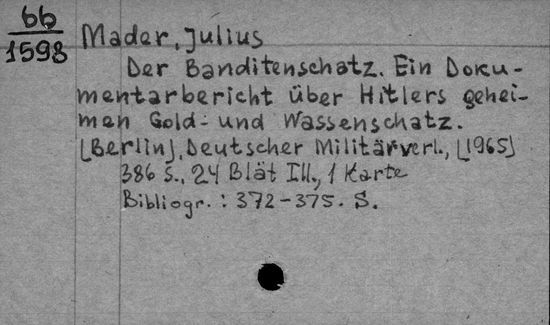 66
1598
Mader, Julius
Der Banditenschatz. Ein Doku-
mentarbericht über Hitlers gehei-
men Gold- und Wassenschatz.
[Berlin], Deutscher Militärverl., [1965]
386 S., 24 Blät Ill., 1 Karte
Bibliogr.: 372-375. S.